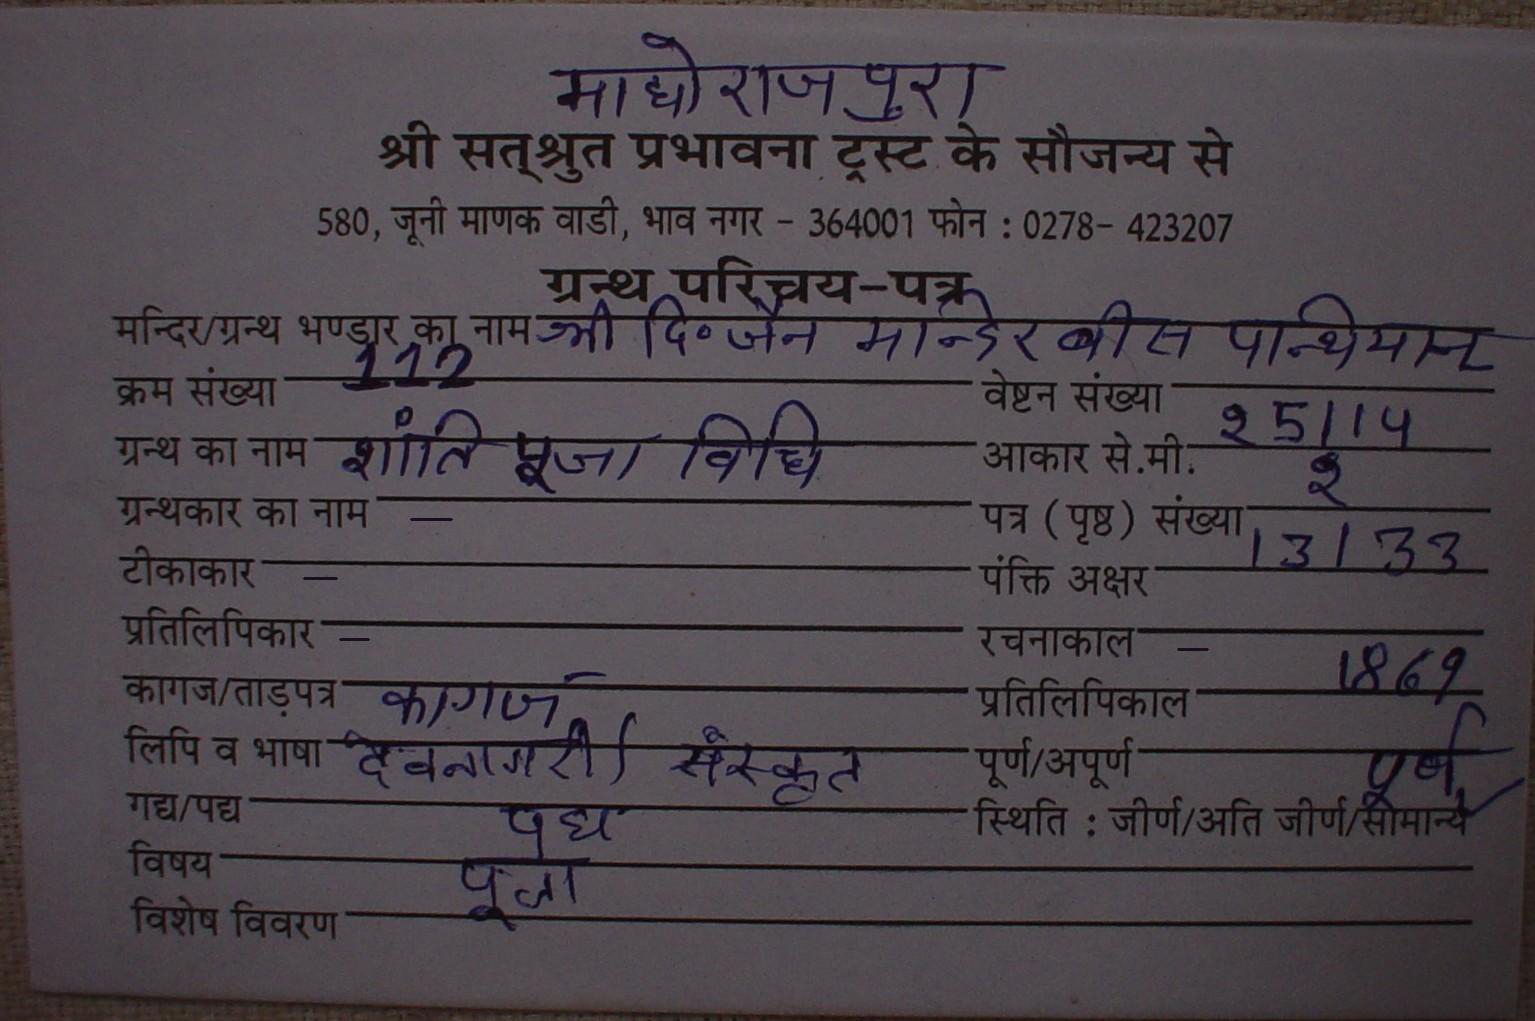 माधोराजपुरा
श्री सत्श्रुत प्रभावना ट्रस्ट के सौजन्य से
580, जूनी माणक वाडी, भाव नगर - 364001 फोन : 0278- 423207
ग्रन्थ परिचय-पत्र
मन्दिर/ग्रन्थ भण्डार का नाम श्री दि० जैन मन्दिर बीस पान्थियान
क्रम संख्या 112 वेष्टन संख्या
ग्रन्थ का नाम शांति पूजा विधि आकार से.मी. २5/14
ग्रन्थकार का नाम — पत्र (पृष्ठ) संख्या २
टीकाकार — पंक्ति अक्षर 13/33
प्रतिलिपिकार — रचनाकाल —
कागज/ताड़पत्र कागज प्रतिलिपिकाल 1869
लिपि व भाषा देवनागरी/संस्कृत पूर्ण/अपूर्ण पूर्ण
गद्य/पद्य पद्य स्थिति : जीर्ण/अति जीर्ण/सामान्य
विषय पूजा
विशेष विवरण